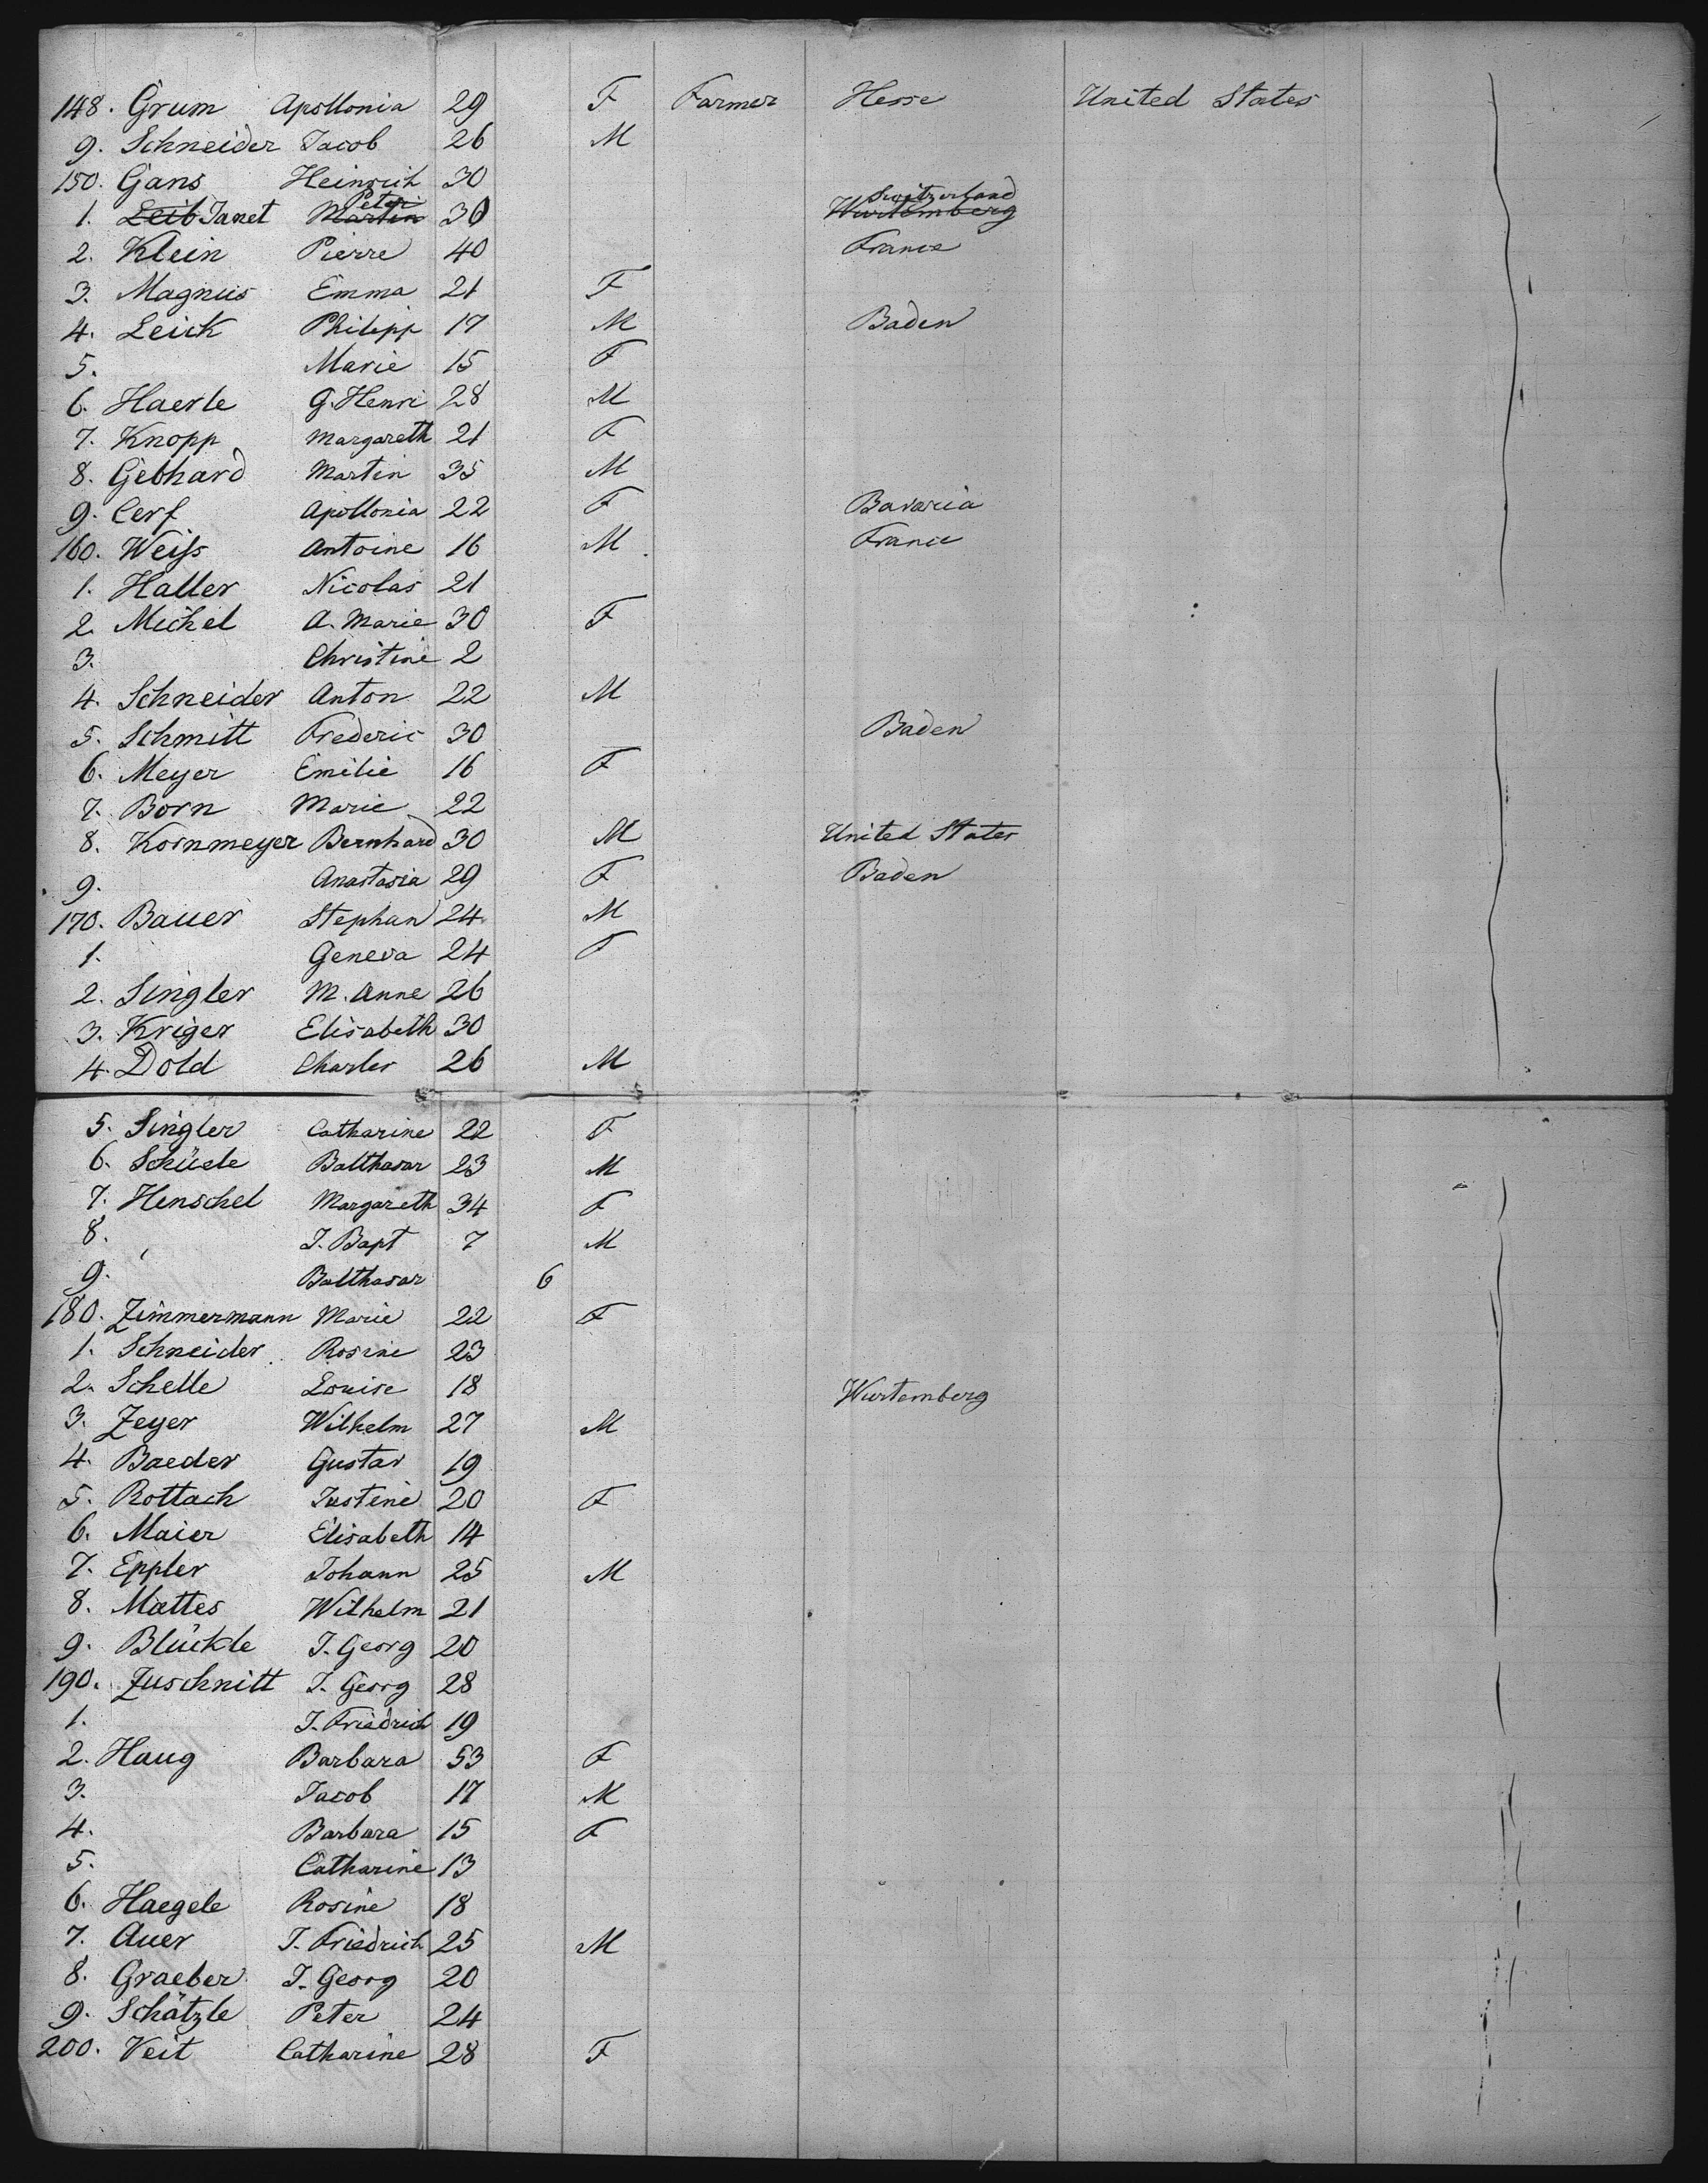 148. Grum Apollonia 29 F Farmer Hesse United States
9. Schneider Jacob 26 M
150. Gans Heinrich 30
Peter Switzerland
1. Leib Janet Martin 30 Wurtemberg
2. Klein Pierre 40 France
3. Magnus Emma 21 F
4. Leick Philipp 17 M Baden
5. Marie 15 F
6. Haerle G. Henri 28 M
7. Knopp Margareth 21 F
8. Gebhard Martin 35 M
9. Cerf Apollonia 22 F Bavaria
160. Weiss Antoine 16 M France
1. Haller Nicolas 21
2. Michel A. Marie 30 F
3. Christine 2
4. Schneider Anton 22 M
5. Schmitt Frederic 30 Baden
6. Meyer Emilie 16 F
7. Born Marie 22
8. Kornmeyer Bernhard 30 M United States
9. Anastasia 29 F Baden
170. Bauer Stephan 24 M
1. Geneva 24 F
2. Singler M. Anne 26
3. Kriger Elisabeth 30
4. Dold Charles 26 M
5. Singler Catharine 22 F
6. Schüele Balthasar 23 M
7. Henschel Margareth 34 F
8. J. Bapt 7 M
9. Balthasar 6
180. Zimmermann Marie 22 F
1. Schneider Rosine 23
2. Schelle Louise 18 Wurtemberg
3. Zeyer Wilhelm 27 M
4. Baeder Gustav 19
5. Rottach Justine 20 F
6. Maier Elisabeth 14
7. Eppler Johann 25 M
8. Mattes Wilhelm 21
9. Blückle J. Georg 20
190. Zuschnitt J. Georg 28
1. J. Friedrich 19
2. Haug Barbara 53 F
3. Jacob 17 M
4. Barbara 15 F
5. Catharine 13
6. Haegele Rosine 18
7. Auer J. Friedrich 25 M
8. Graeber J. Georg 20
9. Schätzle Peter 24
200. Veit Catharine 28 F